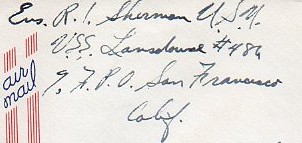 Ens. R. I. Sherman U.S.N.
U.S.S. Lansdowne #486
% F.P.O. San Francisco
Calif.
air
mail